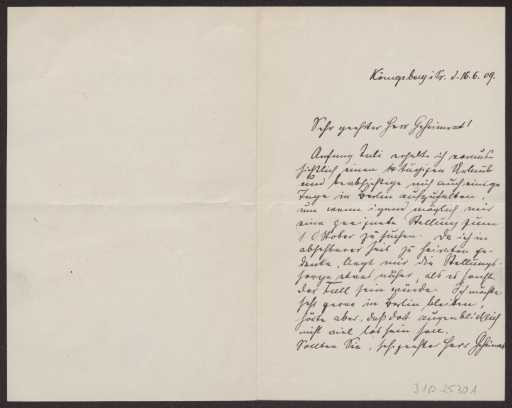 Königsberg i Pr. d. 16.6.09.
Sehr geehrter Herr Geheimrat!
Anfang Juli erhalte ich voraus-
sichtlich einen 14 tägigen Urlaub
und beabsichtige mich auch einige
Tage in Berlin aufzuhalten,
um wenn irgend möglich mir
eine geeignete Stellung zum
1 Oktober zu suchen. Da ich in
absehbarer Zeit zu heiraten ge-
denke, liegt mir die Stellungs-
frage etwas näher, als es sonst
der Fall sein würde. Ich möchte
sehr gerne in Berlin bleiben,
hörte aber, daß dort augenblicklich
nicht viel los sein soll.
Sollten Sie, sehr geehrter Herr Geheimrat